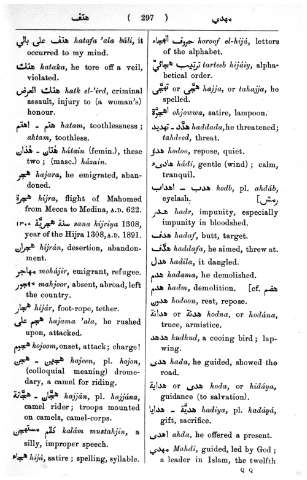 هتف
( 297 )
مهدي
هتف على بالي hatafa 'ala bāli, it
occurred to my mind.
هتك hataka, he tore off a veil,
violated.
هتك العرض hatk el-'erd, criminal
assault, injury to (a woman's)
honour.
هتم - اهتم hatam, toothlessness;
ahtam, toothless.
هتان - هذان hātain (femin.), these
two; (masc.) házain.
هجر hajara, he emigrated, aban-
doned.
هجرة hijra, flight of Mahomed
from Mecca to Medina, A.D. 622.
سنة هجرية ١٣٠٨ sana hijriya 1308,
year of the Hijra 1308, A.D. 1891.
هجران hijrán, desertion, abandon-
ment.
مهاجر mohájir, emigrant, refugee.
مهجور mahjoor, absent, abroad, left
the country.
هجار hijár, foot-rope, tether.
هجم على hajama 'ala, he rushed
upon, attacked.
هجوم hojoom, onset, attack; charge!
هجين - هجن hajeen, pl. hojon,
(colloquial meaning) drome-
dary, a camel for riding.
هجان - هجانة hajján, pl. hajjána,
camel rider; troops mounted
on camels, camel-corps.
كلام مستهجن kalám mustahjin, a
silly, improper speech.
هجاء hijá, satire; spelling, syllable.
حروف الهجاء horoof el-hijá, letters
of the alphabet.
ترتيب هجائي tarteeb hijáiy, alpha-
betical order.
هجى or تهجى hajja, or tahajja, he
spelled.
هجوة ohjowwa, satire, lampoon.
هدد - تهديد haddada, he threatened;
tahdeed, threat.
هدو hodoo, repose, quiet.
هادي hádi, gentle (wind); calm,
tranquil.
هدب - اهداب hodb, pl. ahdáb,
eyelash. [رمش
هدر hadr, impunity, especially
impunity in bloodshed.
هدف hadaf, butt, target.
هدف haddafa, he aimed, threw at.
هدل hadila, it dangled.
هدم hadama, he demolished.
هدم hadm, demolition. [cf. هضم
هدون hodoon, rest, repose.
هدنة or هدانة hodna, or hodána,
truce, armistice.
هدهد hudhud, a cooing bird; lap-
wing.
هدى hada, he guided, showed the
road.
هدى or هداية hoda, or hidáya,
guidance (to salvation).
هدية - هدايا hadiya, pl. hadáyá,
gifts, sacrifice.
اهدى ahda, he offered a present.
مهدي Mahdi, guided, led by God;
a leader in Islam, the twelfth